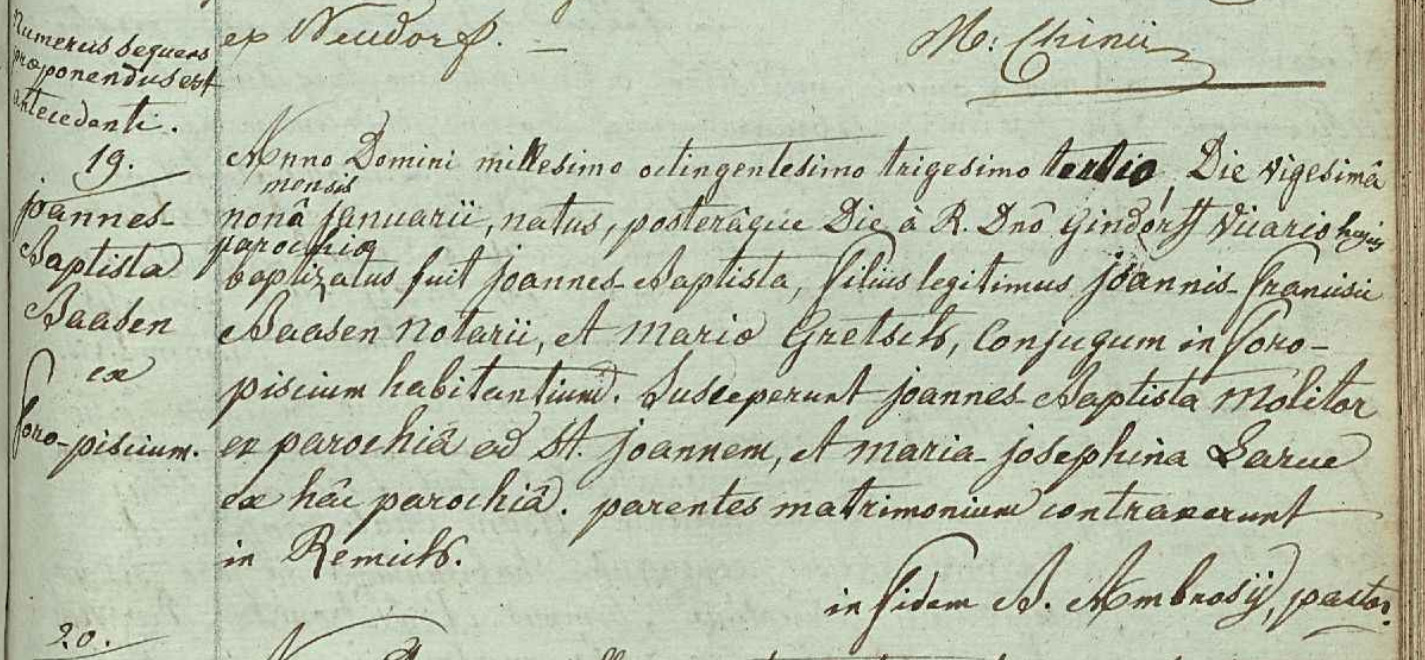 ex Neudorf. —
M: Chinii
Numerus sequens
præponendus est
antecedenti.
19.
joannes-
Baptista
Baasen
ex
foro-piscium.
Anno Domini millesimo octingentesimo trigesimo tertio, Die vigesimâ
mensis
nonâ januarii, natus, posterâque Die à R. Dnô Gindorff Vicario hujus
parochiæ
baptizatus fuit joannes-Baptista, filius legitimus joannis-Francisci
Baasen notarii, et mariæ Gretsch, Conjugum in foro-
piscium habitantium. Susceperunt joannes-Baptista Molitor
ex parochiâ ad St. joannem, et maria-josephina Larue
ex hâc parochiâ. parentes matrimonium contraxerunt
in Remich.
in fidem B. Ambrosÿ, pastor.
20.